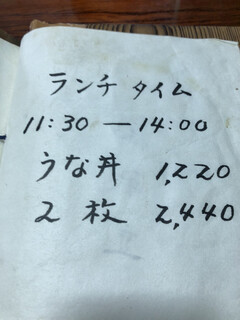 ランチ タイム
11:30 — 14:00
うな丼 1,220
2 枚 2,440